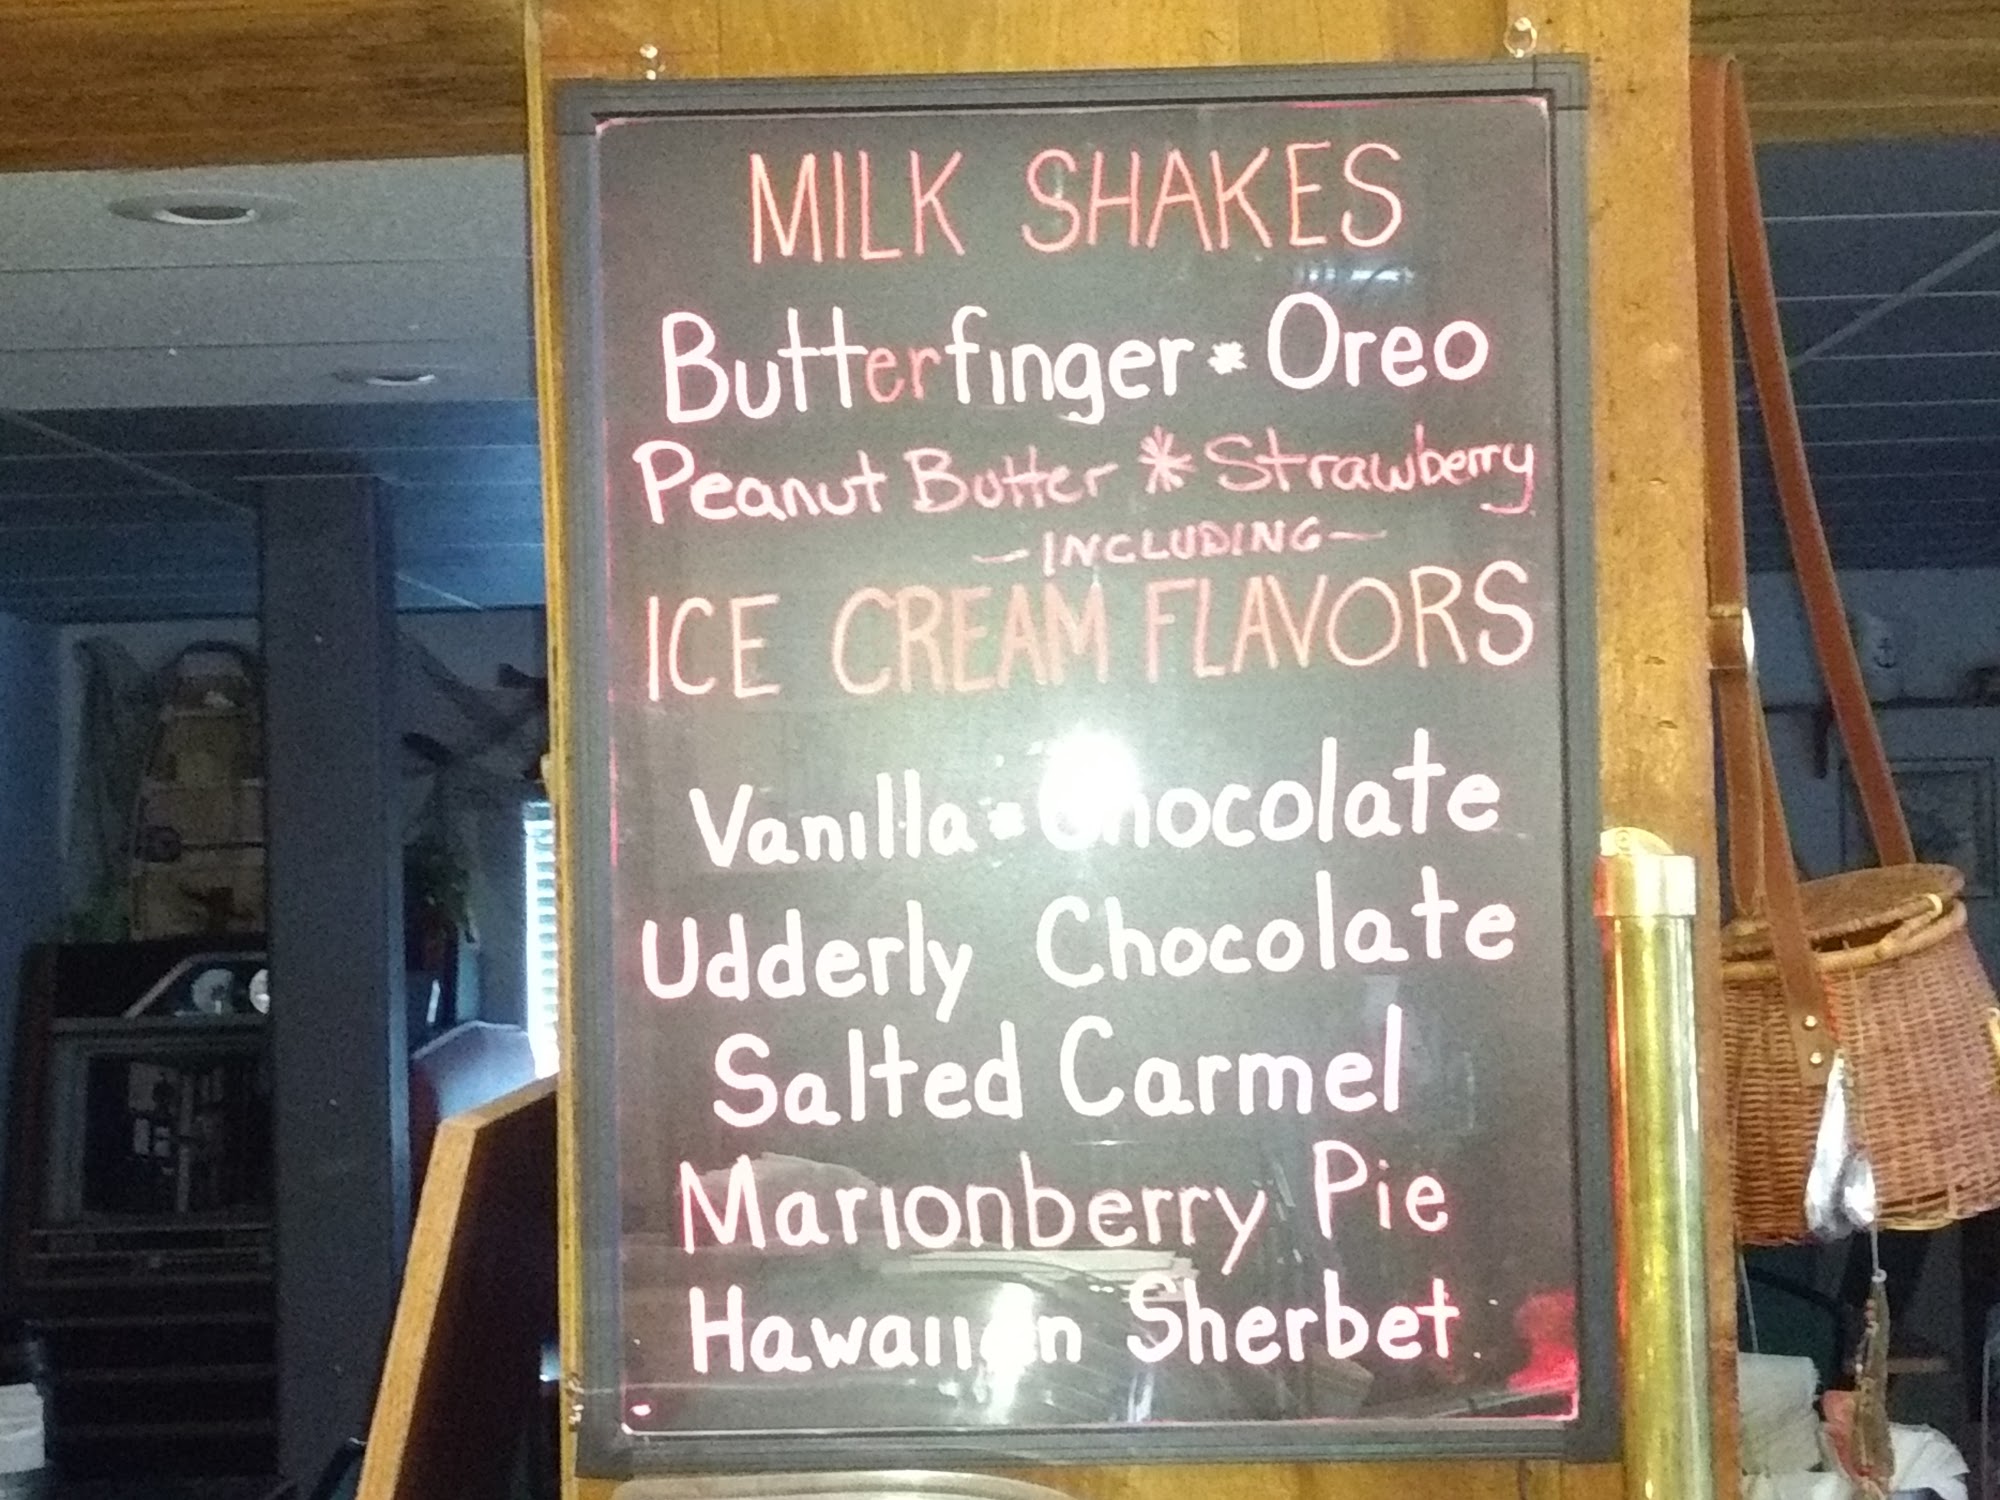 MILK SHAKES
Butterfinger * Oreo
Peanut Butter * Strawberry
— INCLUDING —
ICE CREAM FLAVORS
Vanilla * Chocolate
Udderly Chocolate
Salted Carmel
Marionberry Pie
Hawaiian Sherbet